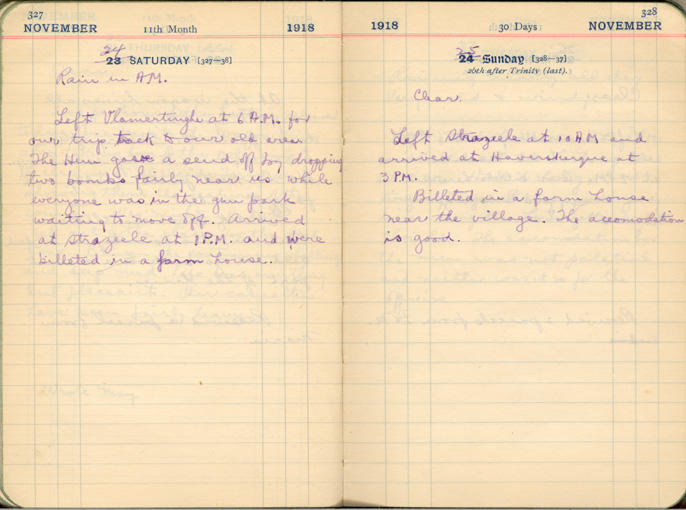 327
NOVEMBER 11th Month 1918
24
23 SATURDAY [327—38]
Rain in A.M.
Left Vlamertinghe at 6 A.M. for
our trip back to our old area
The Hun gave a send off by dropping
two bombs fairly near us while
everyone was in the gun park
waiting to move off. Arrived
at Strazeele at 1 P.M. and were
billeted in a farm house.
328
1918 30 Days NOVEMBER
25
24 Sunday [328—37]
26th after Trinity (last).
Clear.
Left Strazeele at 10 AM and
arrived at Haverskerque at
3 P.M.
Billeted in a farm house
near the village. The accomodation
is good.